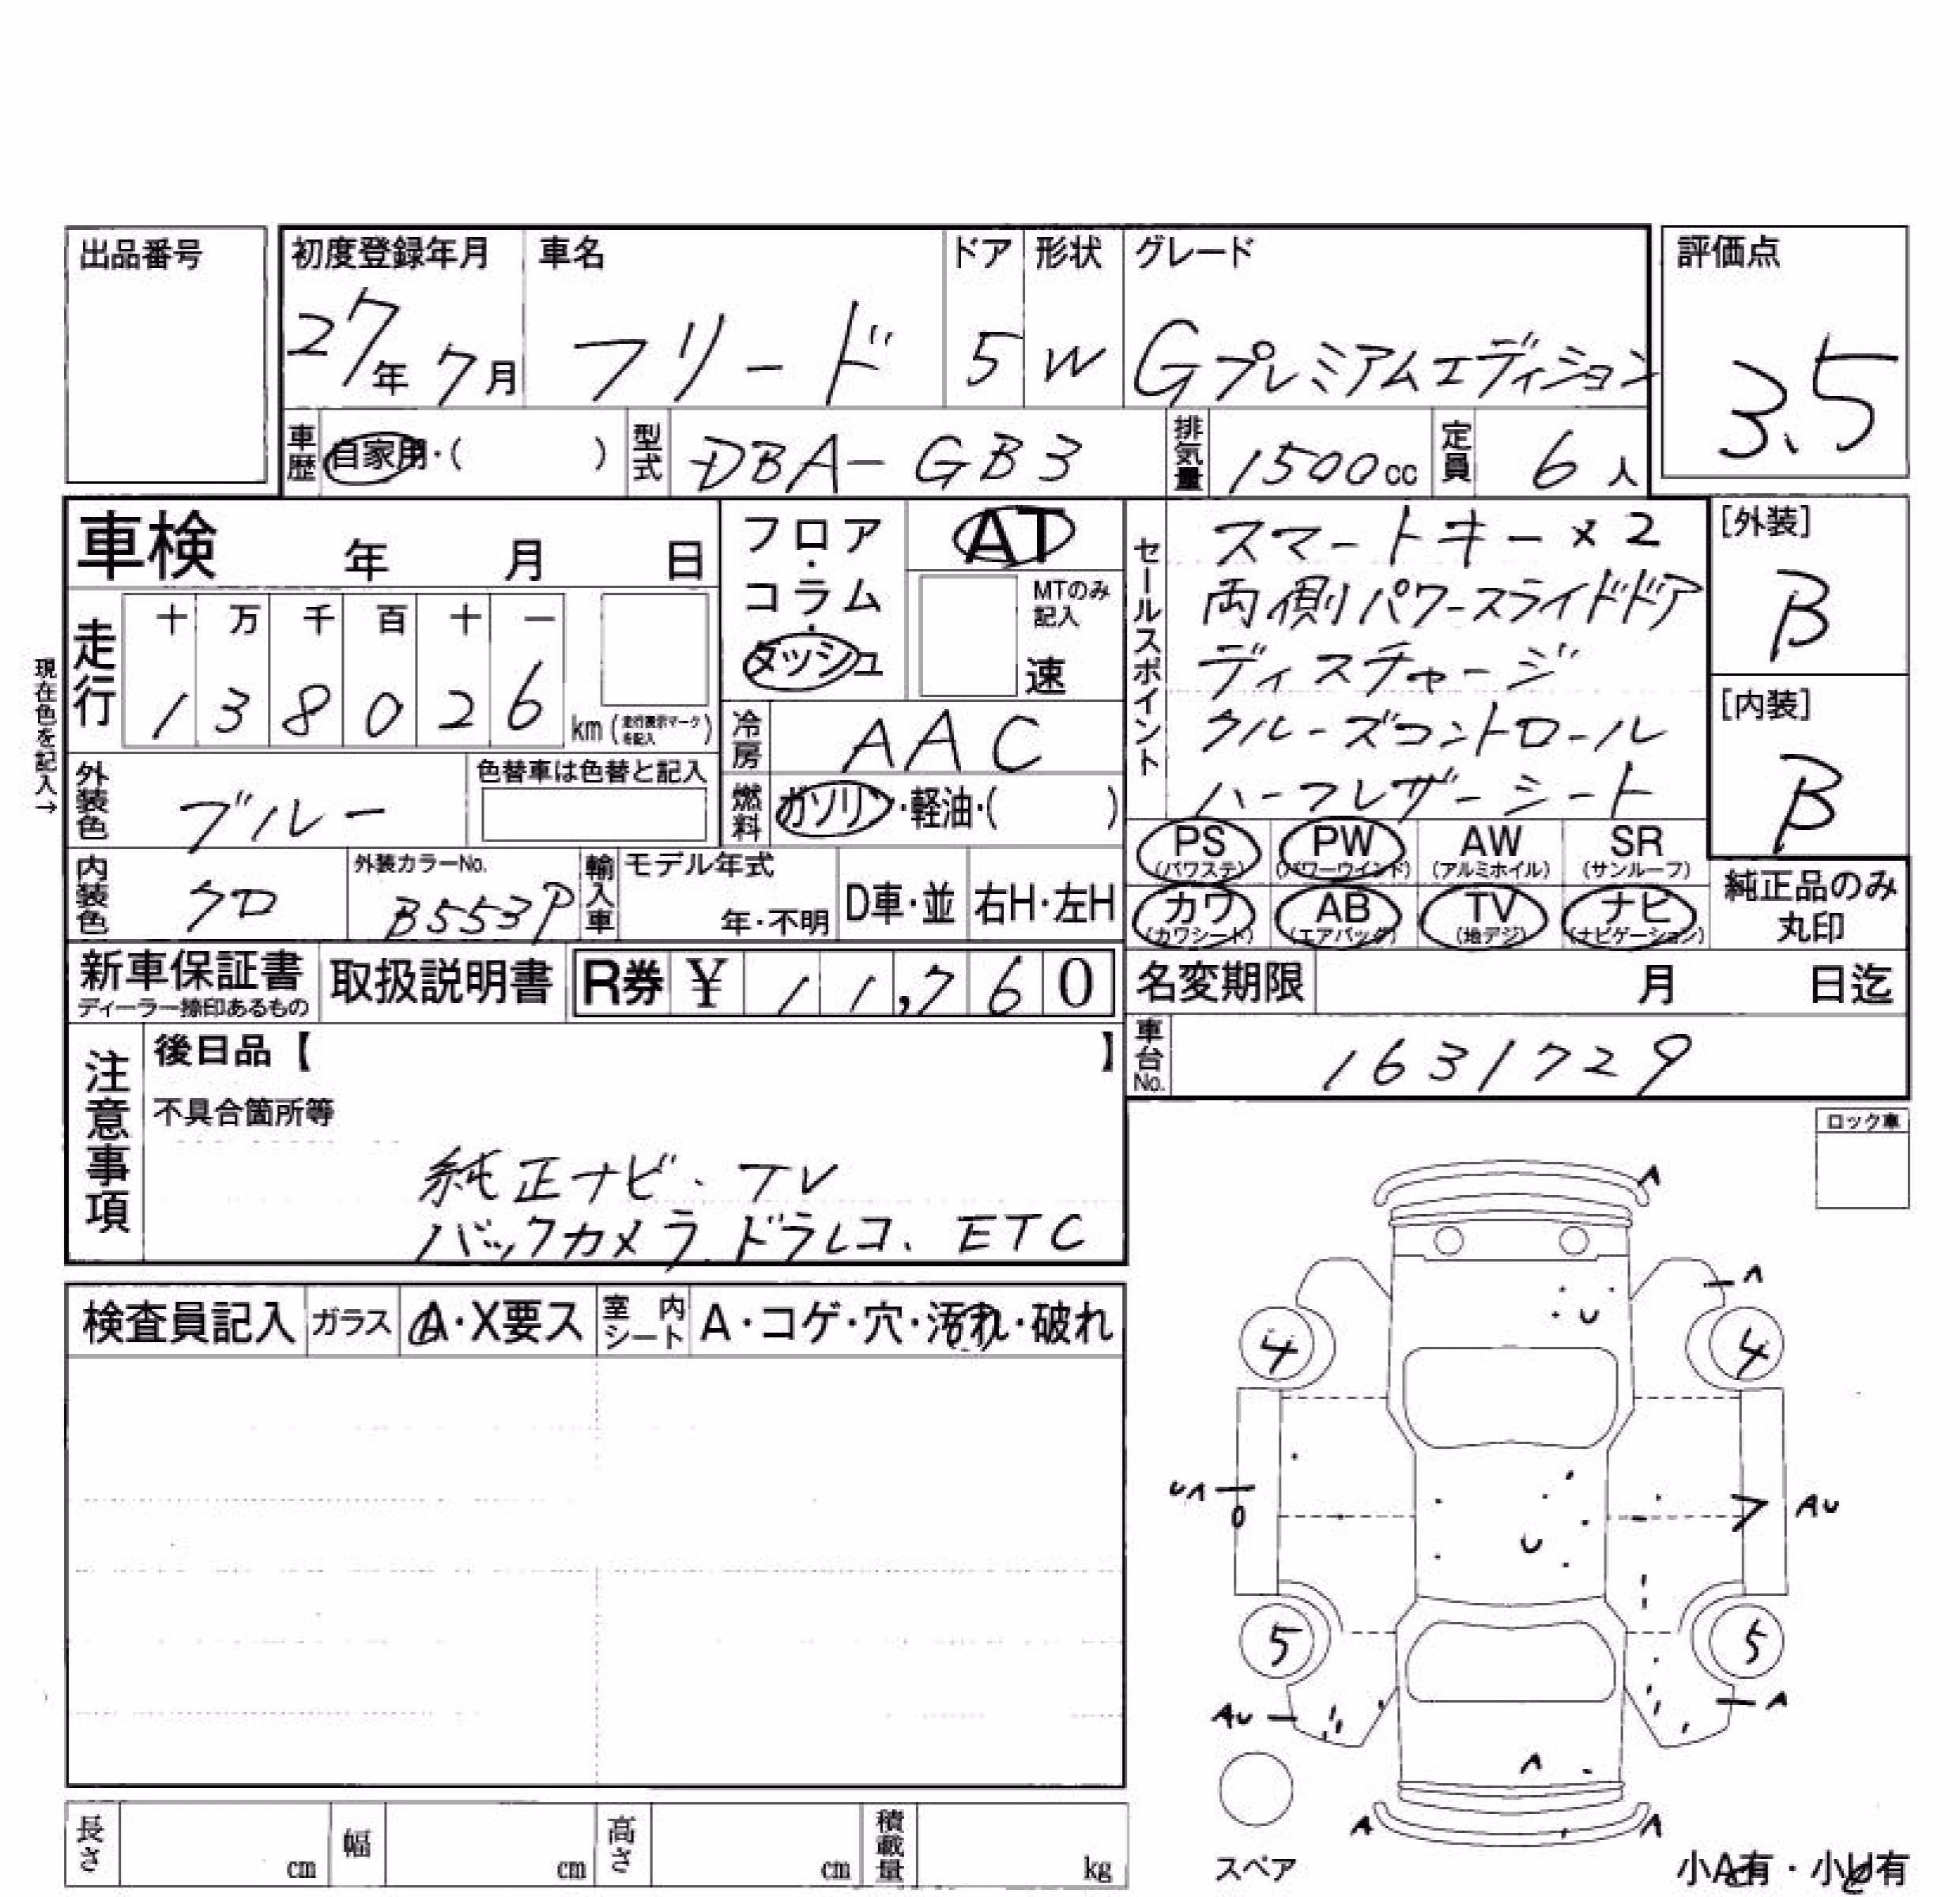 出品番号
初度登録年月 車名 ドア 形状 グレード 評価点
27年 7月 フリード 5 W Gプレミアムエディション 3.5
車歴 自家用・( ) 型式 DBA-GB3 排気量 1500cc 定員 6人
車検 年 月 日
フロア・コラム・ダッシュ
AT
MTのみ記入
速
現在色を記入→
走行
十 万 千 百 十 一
1 3 8 0 2 6 km (走行表示マークを記入)
冷房 AAC
燃料 ガソリン・軽油・( )
外装色 ブルー 色替車は色替と記入
内装色 クロ 外装カラーNo. B553P 輸入車 モデル年式 年・不明 D車・並 右H・左H
セールスポイント
スマートキー×2
両側パワースライドドア
ディスチャージ
クルーズコントロール
ハーフレザーシート
[外装]
B
[内装]
B
PS (パワステ) PW (パワーウインド) AW (アルミホイル) SR (サンルーフ)
カワ (カワシート) AB (エアバック) TV (地デジ) ナビ (ナビゲーション)
純正品のみ丸印
新車保証書 ディーラー捺印あるもの 取扱説明書 R券 ¥ 11,760
名変期限 月 日迄
車台No. 1631729
注意事項
後日品【 】
不具合箇所等
純正ナビ、TV
バックカメラ、ドラレコ、ETC
ロック車
検査員記入 ガラス A・X要ス 室内シート A・コゲ・穴・汚れ・破れ
A
A
U
4 4
UA
0
7 AU
U
5 5
AU A
A
A A
スペア
小A有・小U有
長さ cm 幅 cm 高さ cm 積載量 kg